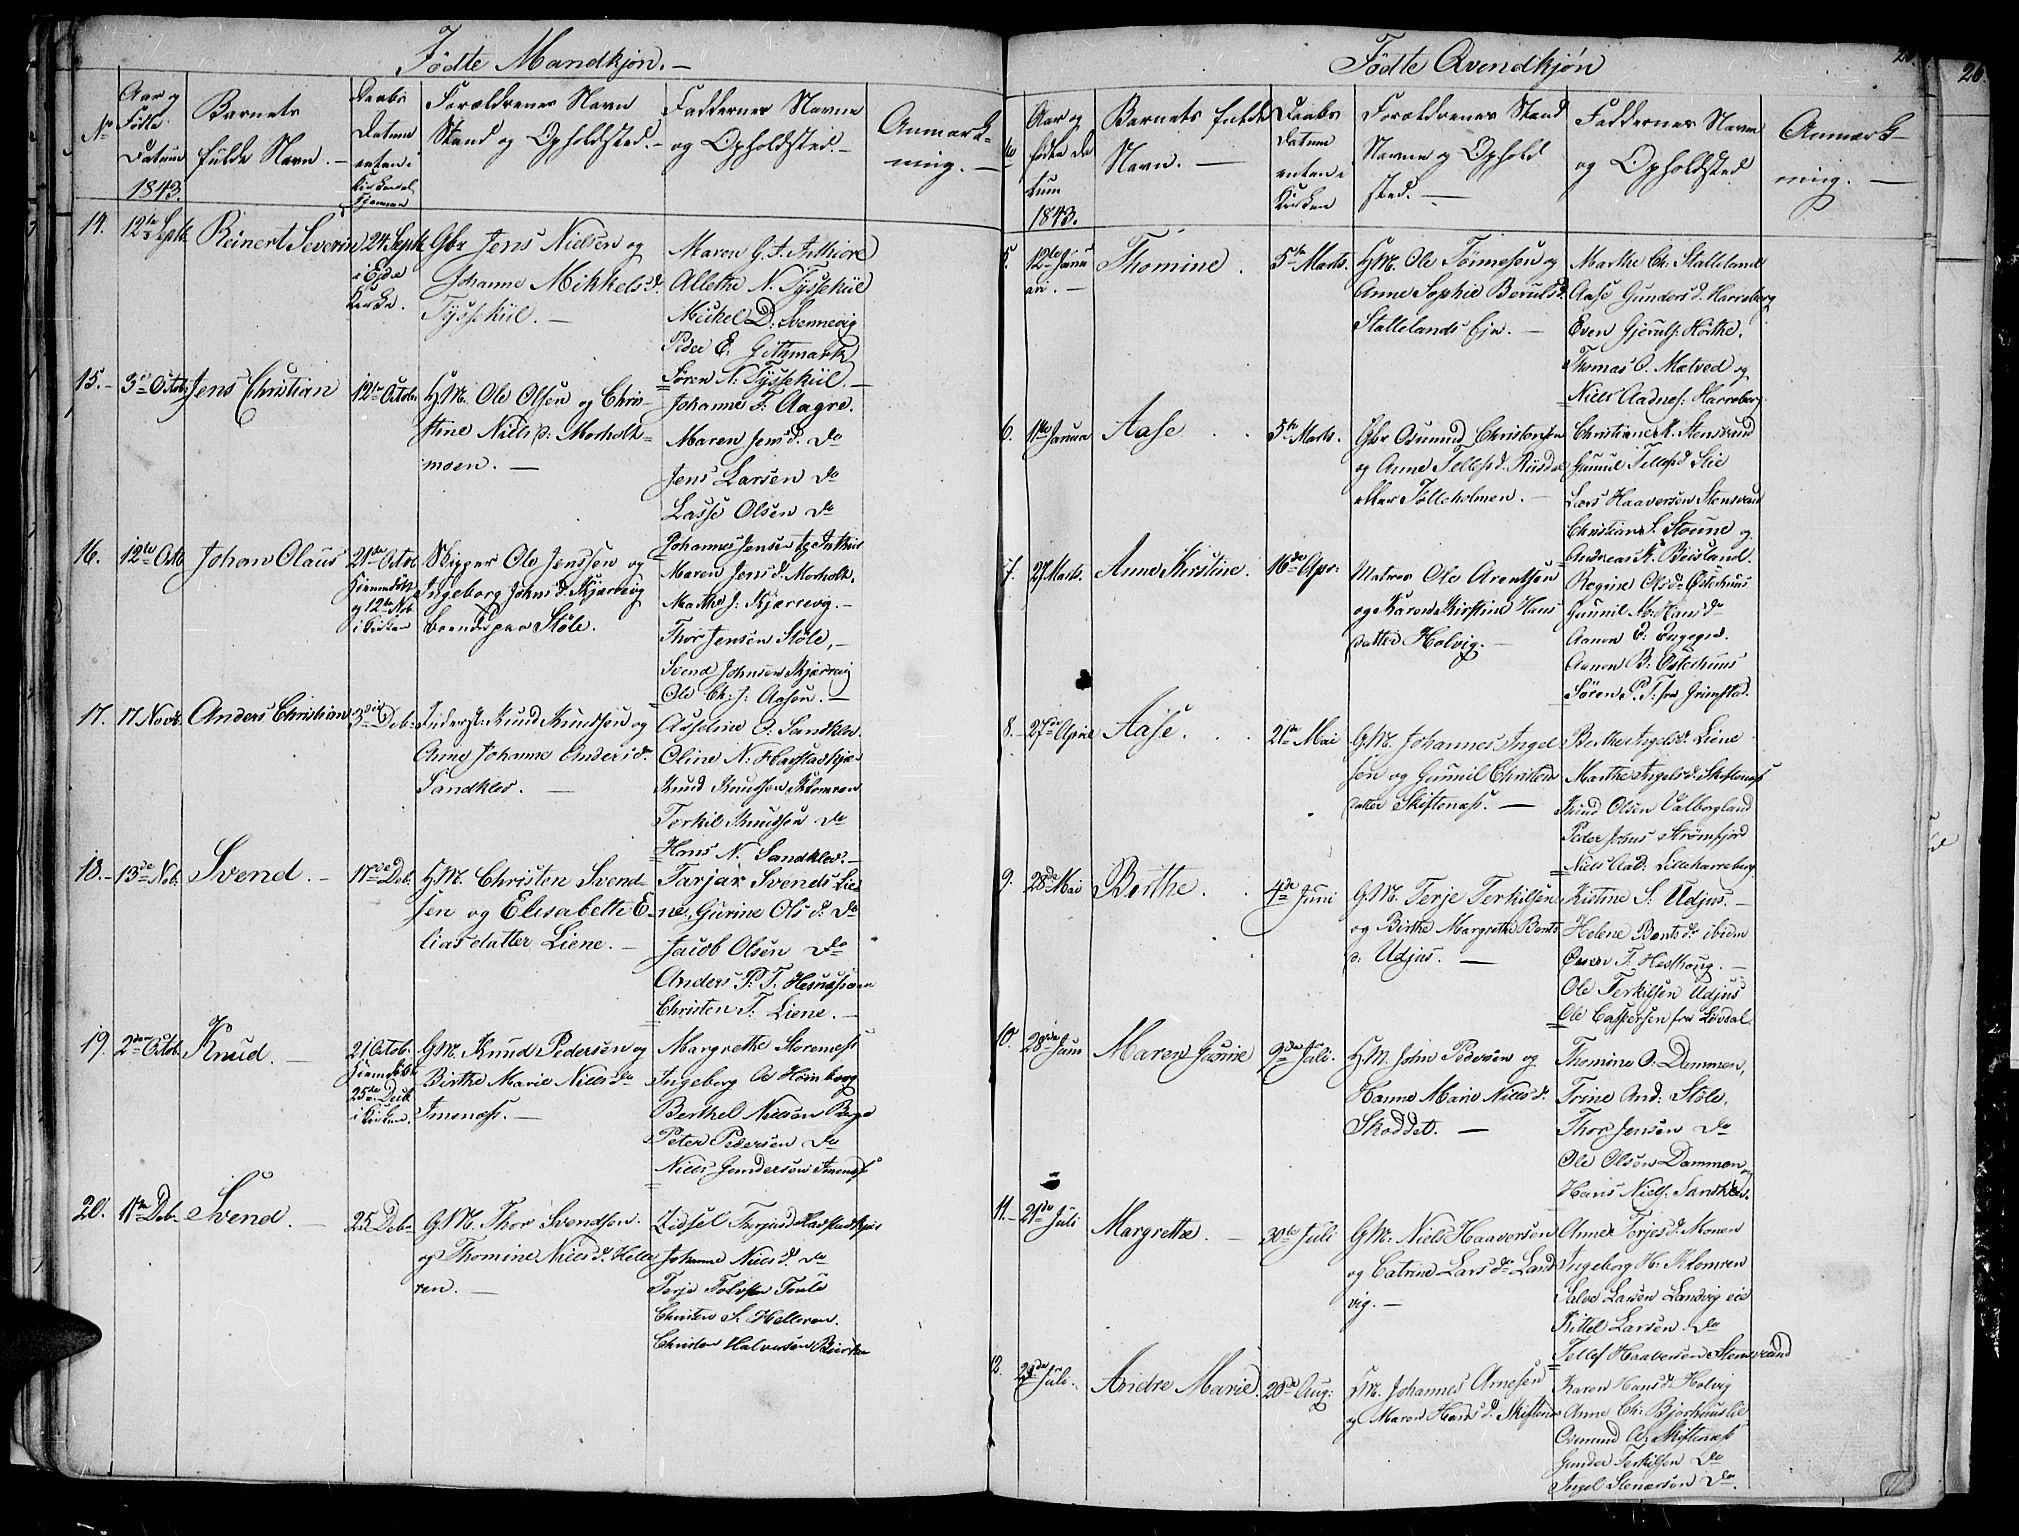 Fødte Mandkjøn. —
No
Aar og
Fødte
Datum
1843.
Barnets
fulde Navn. —
Daabs
Datum
enten i
Kirken el.
Hjemme
Forældrenes Navn
Stand og Opholdsted. —
Faddernes Navne
og Opholdsted. —
Anmærk-
ning. —
14. 12te Septb. Reinert Severin 24 Septb.
i Eide
Kirke.
Gbr Jens Nielsen og
Johanne Mikkelsd.
Tyssekiil. —
Maren G. Inthiore
Allethe N. Tyssekiil
Mickel D. Svennevig
Peder E. Githmark
Søren N. Tyssekiil. —
15. 3die Octob. Jens Christian 12te Octob.
H.M. Ole Olsen og Chri-
stine Nielsd. Morholt-
moen. —
Johanne T. Aagre.
Maren Jensd. Do
Jens Larsen Do
Lasse Olsen Do
Johannes Jensen
16. 12te Octb Johan Olaus 21de Octob
Hjemmedøbt
og 12te Nob
i Kirken
Skipper Ole Jenssen og
Ingeborg Johnsd. Kjærrevig
boende paa Støle.
Maren Jensd. Morholt.
Marthe J. Kjærrevig. —
Thor Jensen Støle, —
Svend Johnsen Kjærrevig
Ole Ch. J. Aasen. —
17. 17 Novb. Anders Christian 3die Deb.
Inderst Knud Knudsen og
Anne Johanne Andersd.
Sandklev. —
Asseline O. Sandklev.
Oline N. Havstadkjær
Knud Knudsen Klomren
Terkil Knudsen Do
Hans N. Sandklev. —
18. 13de Nob. Svend. — 17de Deb.
H.M. Christen Svend-
sen og Elisabethe E-
liasdatter Liene. —
Tarjær Svends. Lie-
ne, Gurine Olsd. Do
Jacob Olsen Do
Anders P. T.
Christen T. Liene. —
19. 2den Octob. Knud. — 21 Octob.
Hjemdøbt
25de Deb.
i Kirken.
G.M. Knud Pedersen og
Birthe Marie Nielsd.
Imenæs. —
Margrethe Steenæs
Ingeborg A. Homborg
Berthel Nielsen Berge
Peter Pedersen Do
Niels Gundersen Imenæs
20. 11te Deb. Svend. — 25 Deb.
G.M. Thor Svendsen
og Thomine Nielsd. Helle-
ren. —
Zidsel Terjesd. Havstadkjær
Johanne Nielsd. Do
Terje Tolvsen Tonle
Christen S. Helleren.
Christen Halvorsen
Fødte Qvendkjøn
26
No
Aar og
fødte Da
tum
1843.
Barnets fulde
Navn. —
Daabs
Datum
enten i
Kirken
Forældrenes Stand
Navne og Ophold
sted. —
Faddernes Navne
og Opholdsted
Anmærk-
ning. —
5. 12te Janu
ari. — Thomine. 5te Marts.
H.M. Ole Tønnesen og
Anne Sophie Berulsd.
Stallelands Eje. —
Marthe Ch. Stalleland
Aase Gundersd. Harreberg
Even Gjeruls. Horthe.
Thomas O. Mætved og
Niels Aadnes. Harreberg
6. 11te Janua Aase . . 5te Marts.
Gbr Osmund Christensen
og Anne Tellefsd. Riisdal
eller Tolleholmen. —
Christiane K. Stensvand
Gunnil Tellefsd. Slie
Lars Haaversen Stensvand
Christian S. Stoune og
Andreas K. Beisland.
7. 27 Marts. Anne Kirstine. 16de Apr.
Matros Ole Arentsen
og Karen Kirstine Hans
datter Holvig. —
Regine Olsd. Østerhuus
Gunnil M. Hansd.
Aanen E. Engegrd.
Aanen B. Østerhuus
Søren P. T. fra Grimstad.
8. 27de April Aase. . . 21de Mai
G.M. Johannes Ingel
sen og Gunnil Christens
datter Skiftenæs. —
Berthe Ingelsd. Liene
Marthe Ingelsd. Skiftenæs
Knud Olsen Valborgland
Peder Johns Strømfjord
Niels Aad. Lilleharreberg
9. 28de Mai Berthe. . 4de Juni
G.M. Terje Terkilsen
og Birthe Margrethe Bents
d. Udjus. —
Kistine S. Udjus. —
Helene Bentsdr ibidem
T. Hesthaug. —
Ole Terkilsen Udjus
Ole Caspersen fra Løvdal
10. 28de Juni Maren Gurine 9de Juli.
H.M. John Pedersen og
Hanne Marie Nielsd.
Skoddet. —
Thomine O. Dammen,
Trine And. Støle,
Thor Jensen Do
Ole Olsen Dammen og
Hans Niels. Sandklev.
11. 21de Juli Margrethe. — 30te Juli
G.M. Niels Haaversen
og Catrine Larsdr Land
vig. —
Anne Terjesd. Monen
Ingeborg H. Klomren
Salve Larsen Landvig eie
Kittel Larsen Do
Tellef Haaversen Stensvand
12. 23de Juli. Andre Marie. 20de Aug.
H.M. Johannes Arnesen
og Maren Hansd. Skiftenæs
Karen Hansd. Holvig
Anne Ch. Bjorhuuslie
Osmund A. Skiftenæs
Gunder Terkilsen Do
Ingel Stenersen Do.